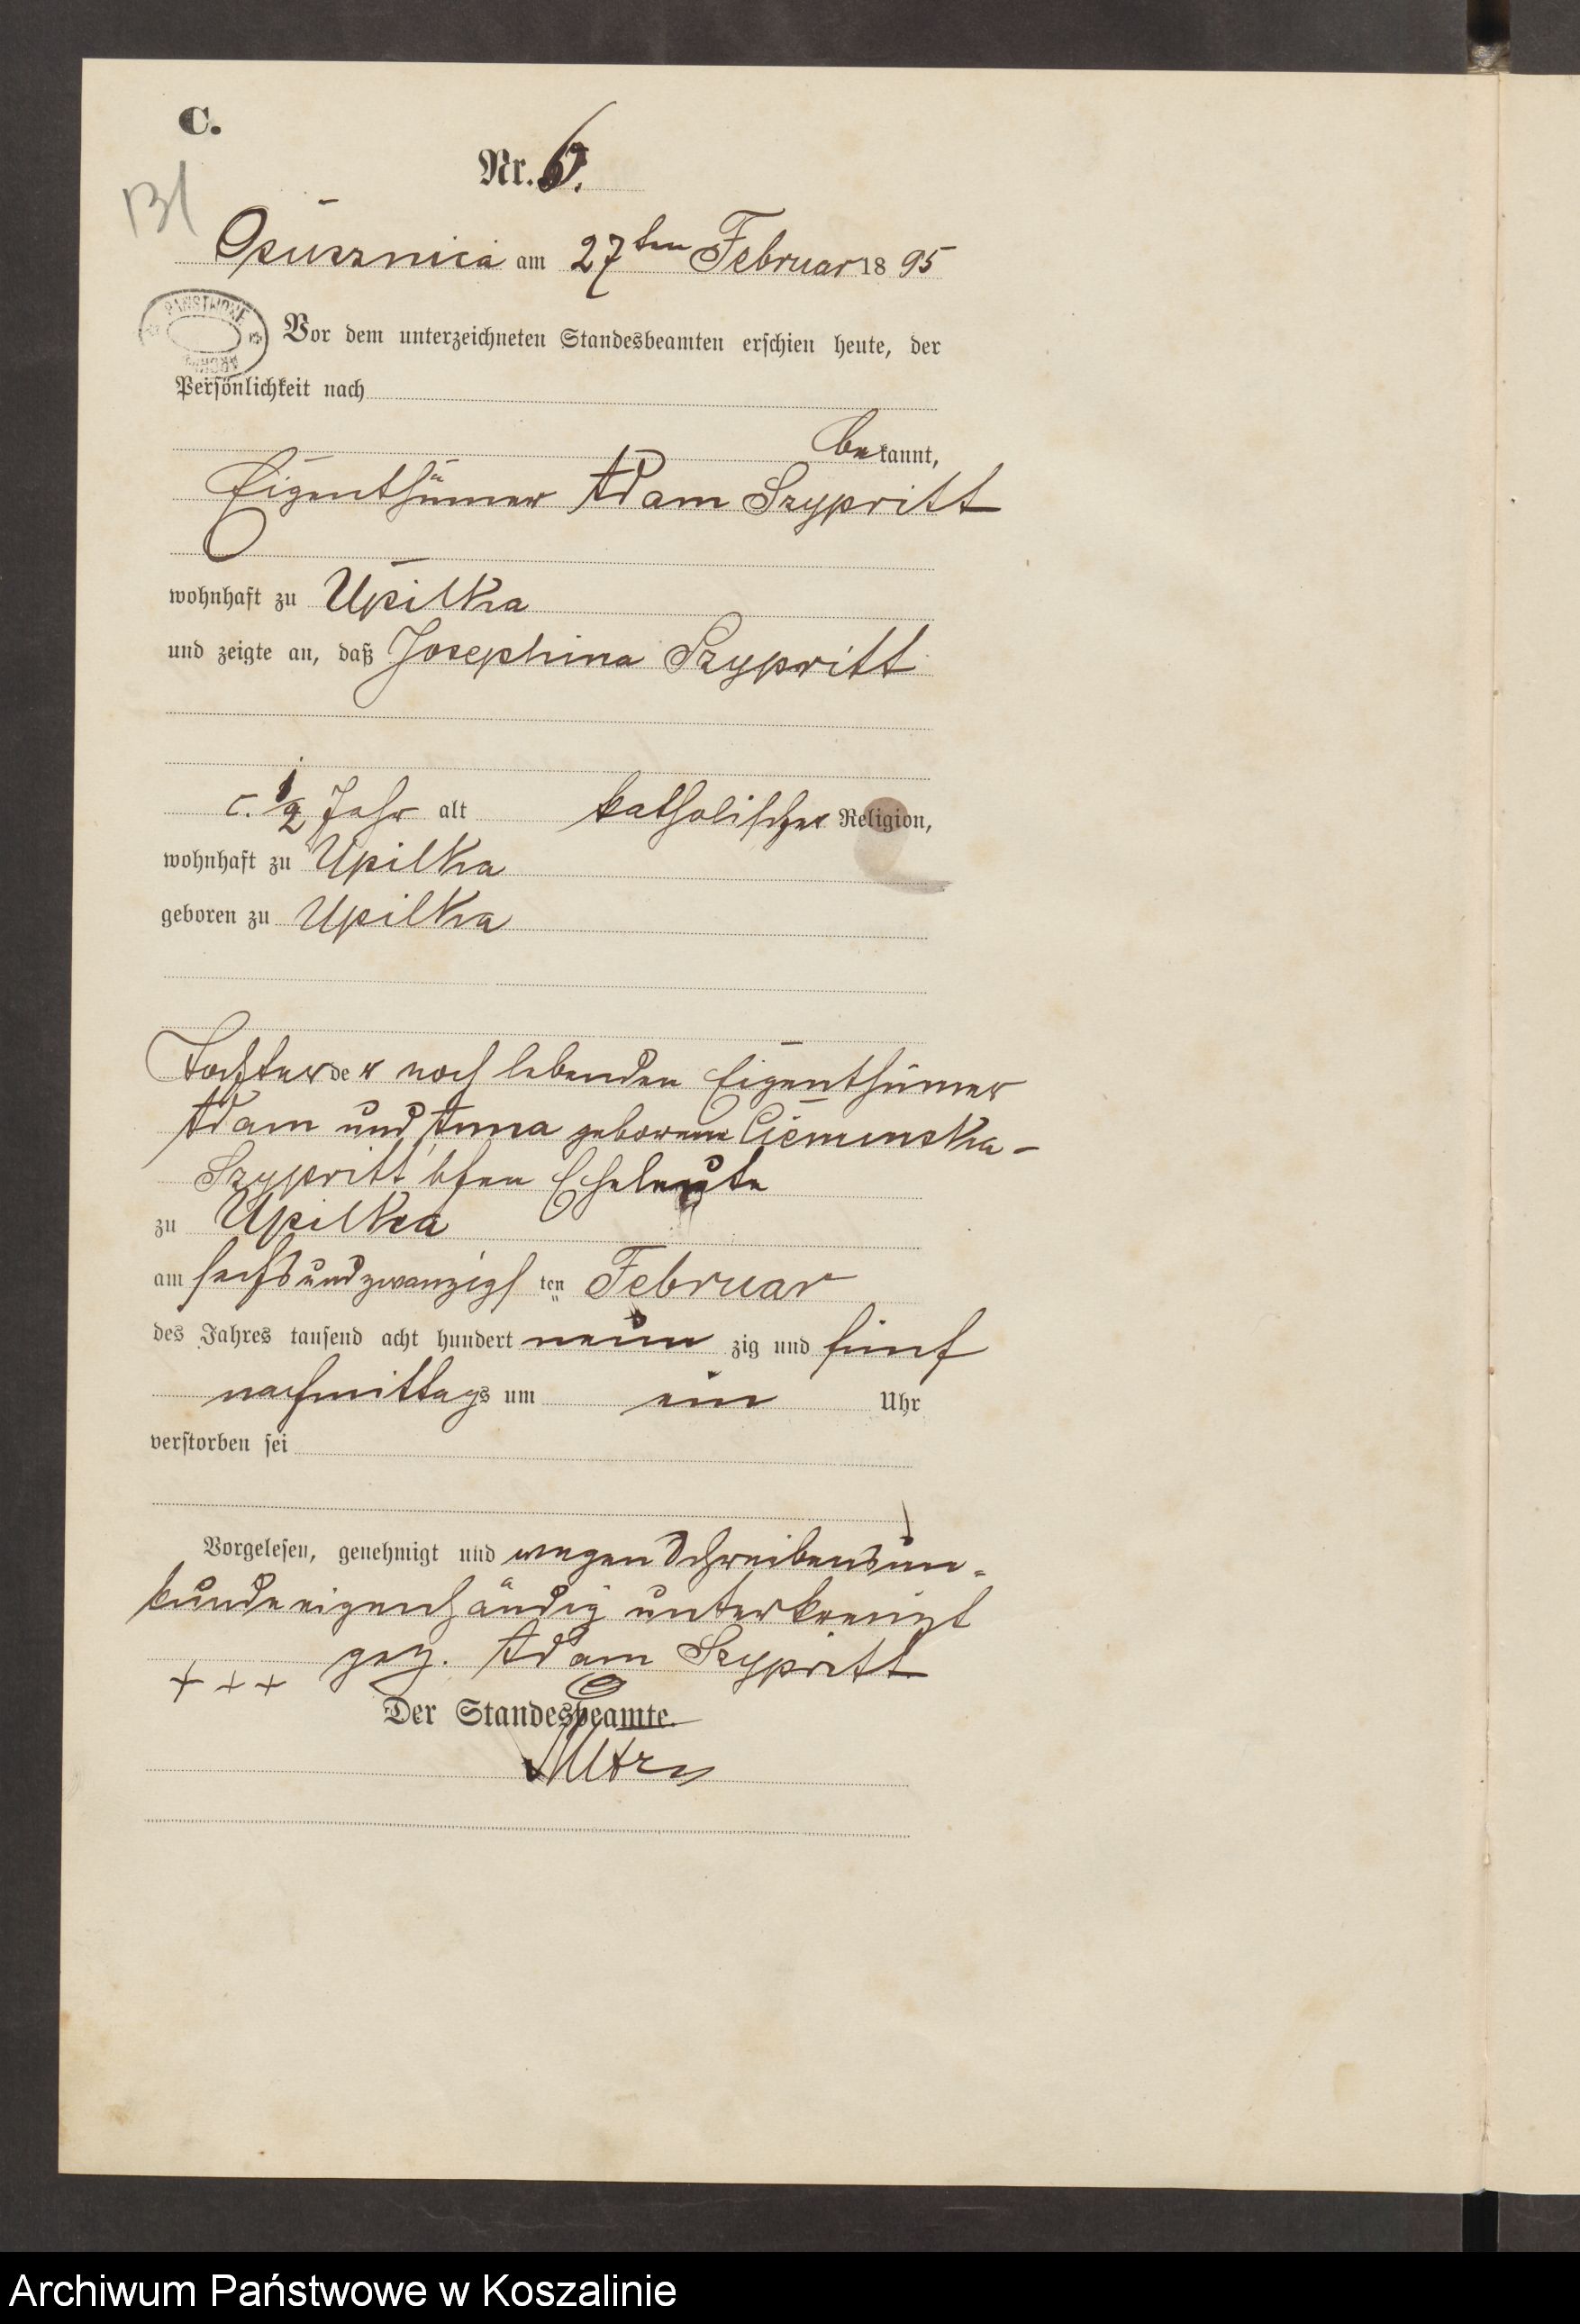 C.
Nr. 6.
131
Osusznica am 27ten Februar 18 95
PAŃSTWOWE
ARCHIWUM
Vor dem unterzeichneten Standesbeamten erschien heute, der
Persönlichkeit nach
bekannt,
Eigenthümer Adam Szypritt
wohnhaft zu Upilka
und zeigte an, daß Josephina Szypritt
c. 1/2 Jahr alt katholischer Religion,
wohnhaft zu Upilka
geboren zu Upilka
Tochter der noch lebenden Eigenthümer
Adam und Anna geborene Ciemenska-
Szypritt'schen Eheleute
zu Upilka
am sechsundzwanzigsten Februar
des Jahres tausend acht hundert neun zig und fünf
nachmittags um ein Uhr
verstorben sei
Vorgelesen, genehmigt und wegen Schreibensun-
kunde eigenhändig unterkreuzt
+++ gez. Adam Szypritt
Der Standesbeamte.
Archiwum Państwowe w Koszalinie